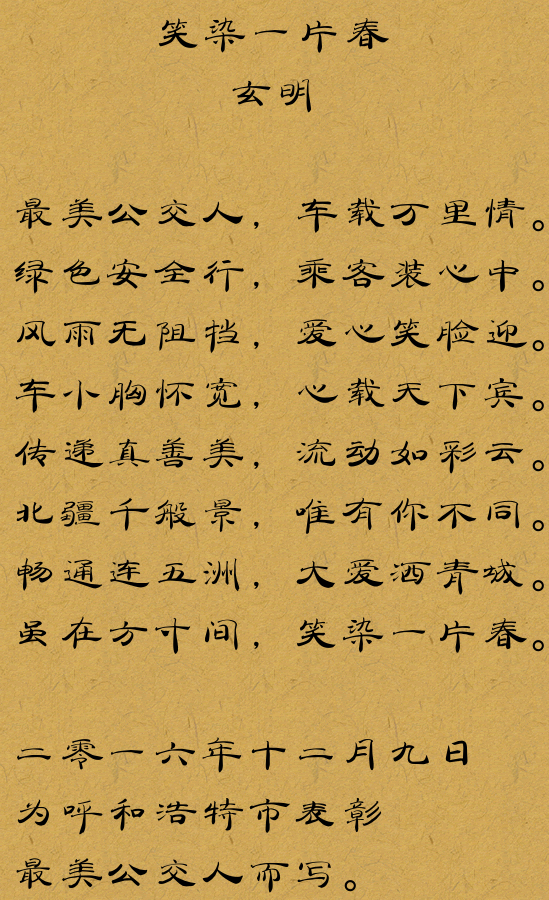 笑染一片春
玄明
最美公交人，车载万里情。
绿色安全行，乘客装心中。
风雨无阻挡，爱心笑脸迎。
车小胸怀宽，心载天下宾。
传递真善美，流动如彩云。
北疆千般景，唯有你不同。
畅通连五洲，大爱洒青城。
虽在方寸间，笑染一片春。
二零一六年十二月九日
为呼和浩特市表彰
最美公交人而写。